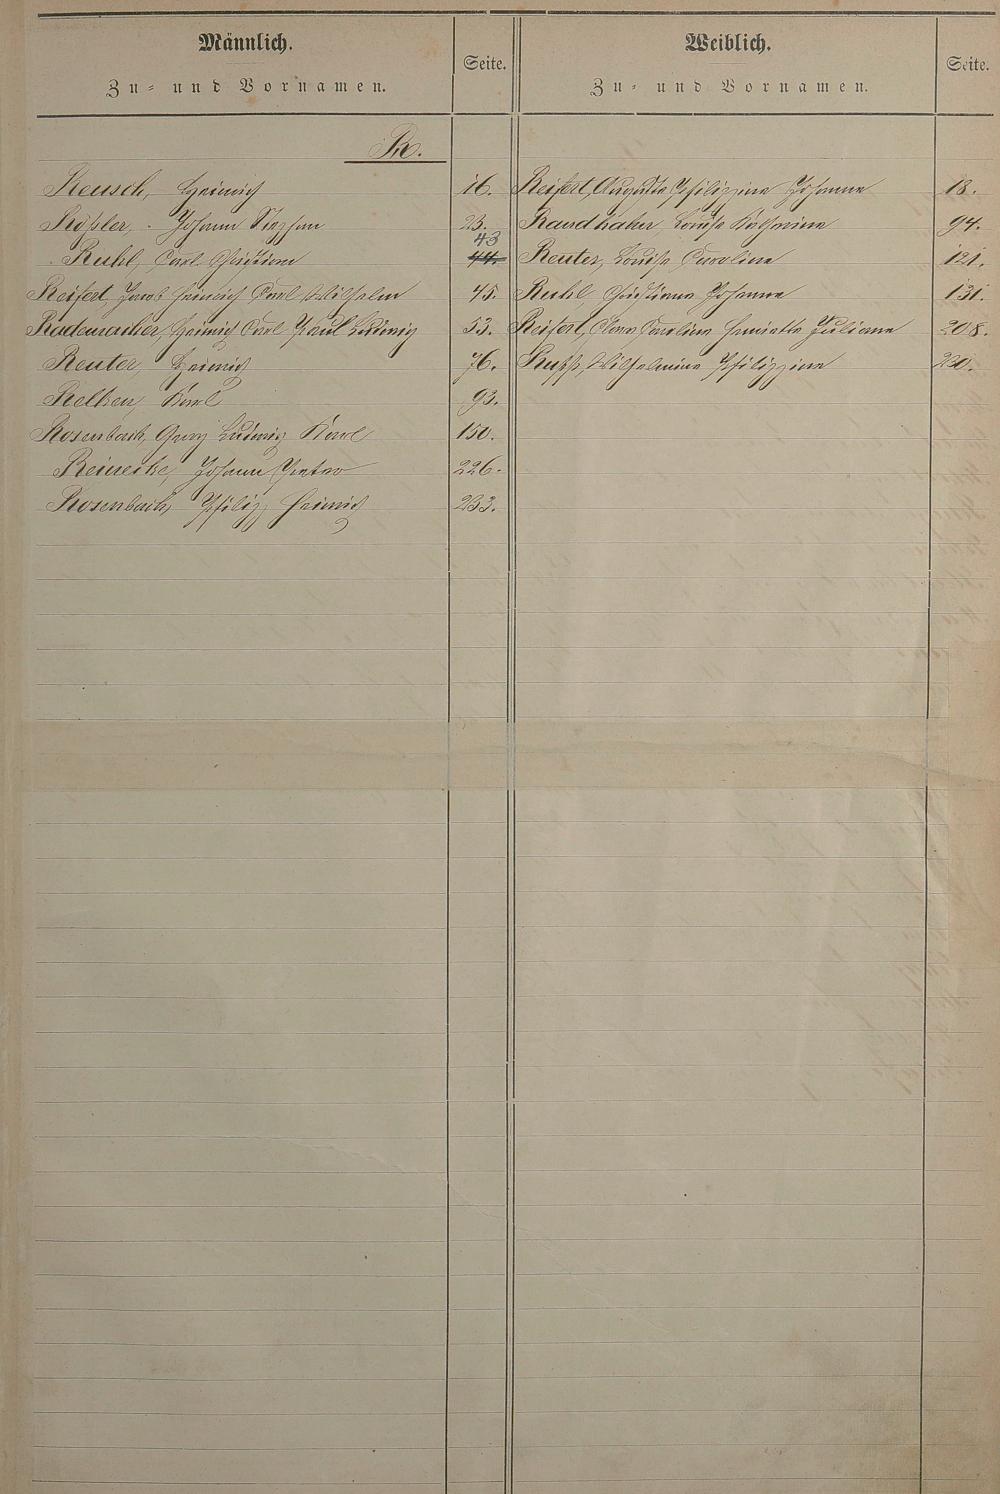 Männlich.
Zu- und Vornamen.
Seite.
Weiblich.
Zu- und Vornamen.
Seite.
R.
Reusch, Heinrich 16.
Rößler, Johann Stephan 23.
43
Ruhl, Carl Christian 44.
Reifert, Jacob Heinrich Carl Wilhelm 45.
Rademacher, Heinrich Carl Paul Ludwig 53.
Reuter, Heinrich 76.
Relken, Karl 93.
Rosenbach, Georg Ludwig Karl 150.
Reinecke, Johann Peter 226.
Rosenbach, Philipp Heinrich 233.
Reifert, Auguste Philippine Johanna 18.
Randhaher, Louise Katharine 94.
Reuter, Louise Caroline 121.
Ruhl, Christiane Johanna 131.
Reifert, Clara Caroline Henriette Juliane 208.
Rupp, Wilhelmine Philippine 230.